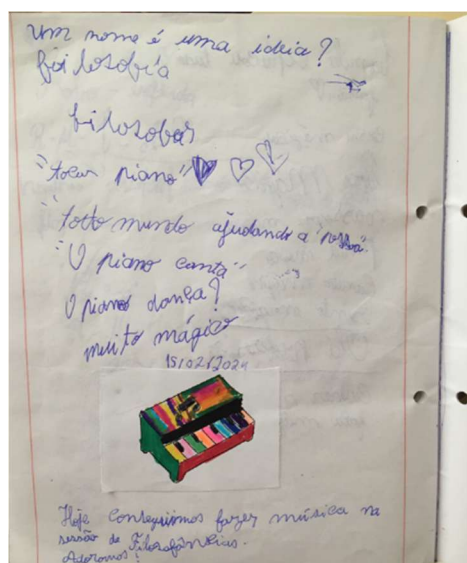 Um nome é uma ideia?
filosofia
filosofar
"tocar piano"
"Totto mundo ajudando a
"O piano canta"
O piano dança?
muito mágico
15/02/2024
Hoje conseguimos fazer música na
sessão de Filosofâncias.
Adoramos!